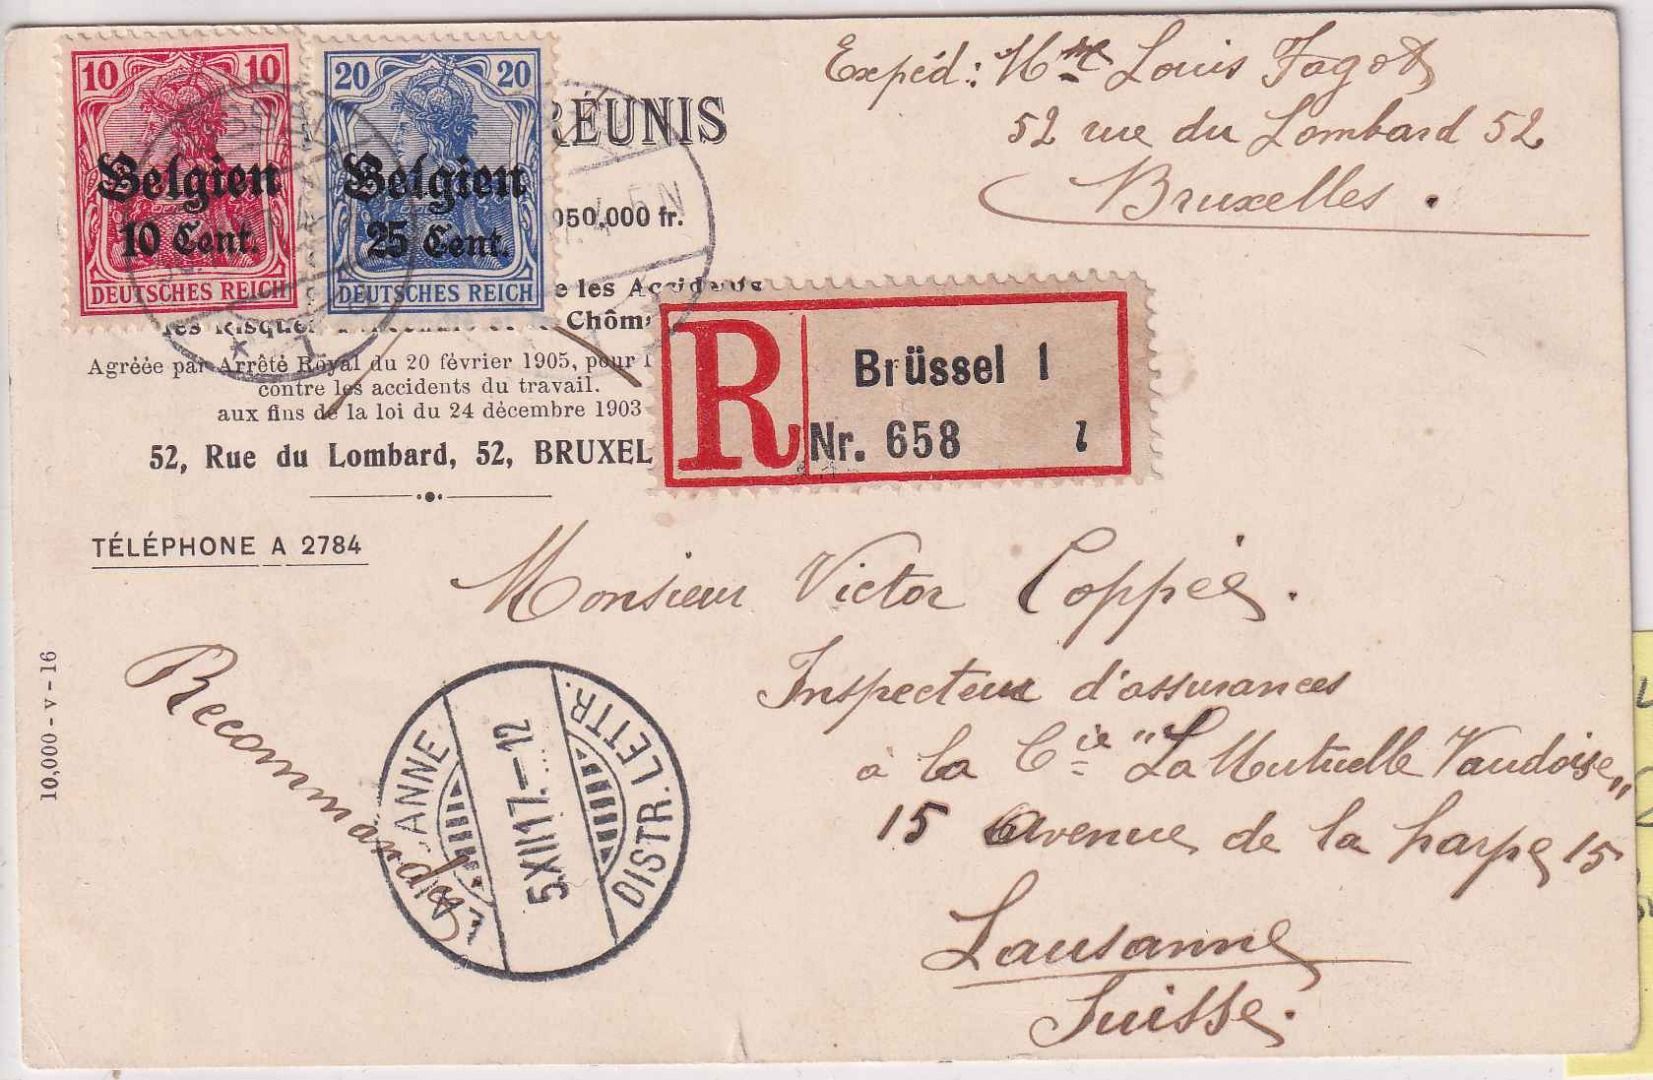 10 10
Belgien
10 Cent.
DEUTSCHES REICH
20 20
Belgien
25 Cent.
DEUTSCHES REICH
RÉUNIS
050.000 fr.
e les Accidents
Agréée par Arrêté Royal du 20 février 1905, pour l
contre les accidents du travail.
aux fins de la loi du 24 décembre 1903
52, Rue du Lombard, 52, BRUXEL
TÉLÉPHONE A 2784
10,000 - v - 16
Expéd: Mme Louis Fagot
52 rue du Lombard 52
Bruxelles.
R
Brüssel 1
Nr. 658 l
Monsieur Victor Coppée.
Inspecteur d'assurances
à la Cie "La Mutuelle Vaudoise"
15 Avenue de la harpe 15
Lausanne
Suisse.
Recommandée
LAUSANNE
5.XII17.-12
DISTR. LETTR.